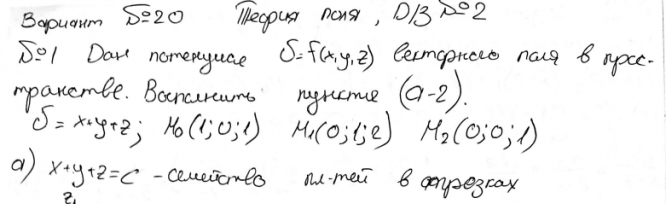 Вариант №20 Теория поля, D/З №2
№1 Дан потенциал U=f(x,y,z) векторного поля в прос-
транстве. Восполнить пункты (а-г).
U=x+y+z; M0(1;0;1) M1(0;1;2) M2(0;0;1)
а) x+y+z=C - семейство пл-тей в отрезках
z